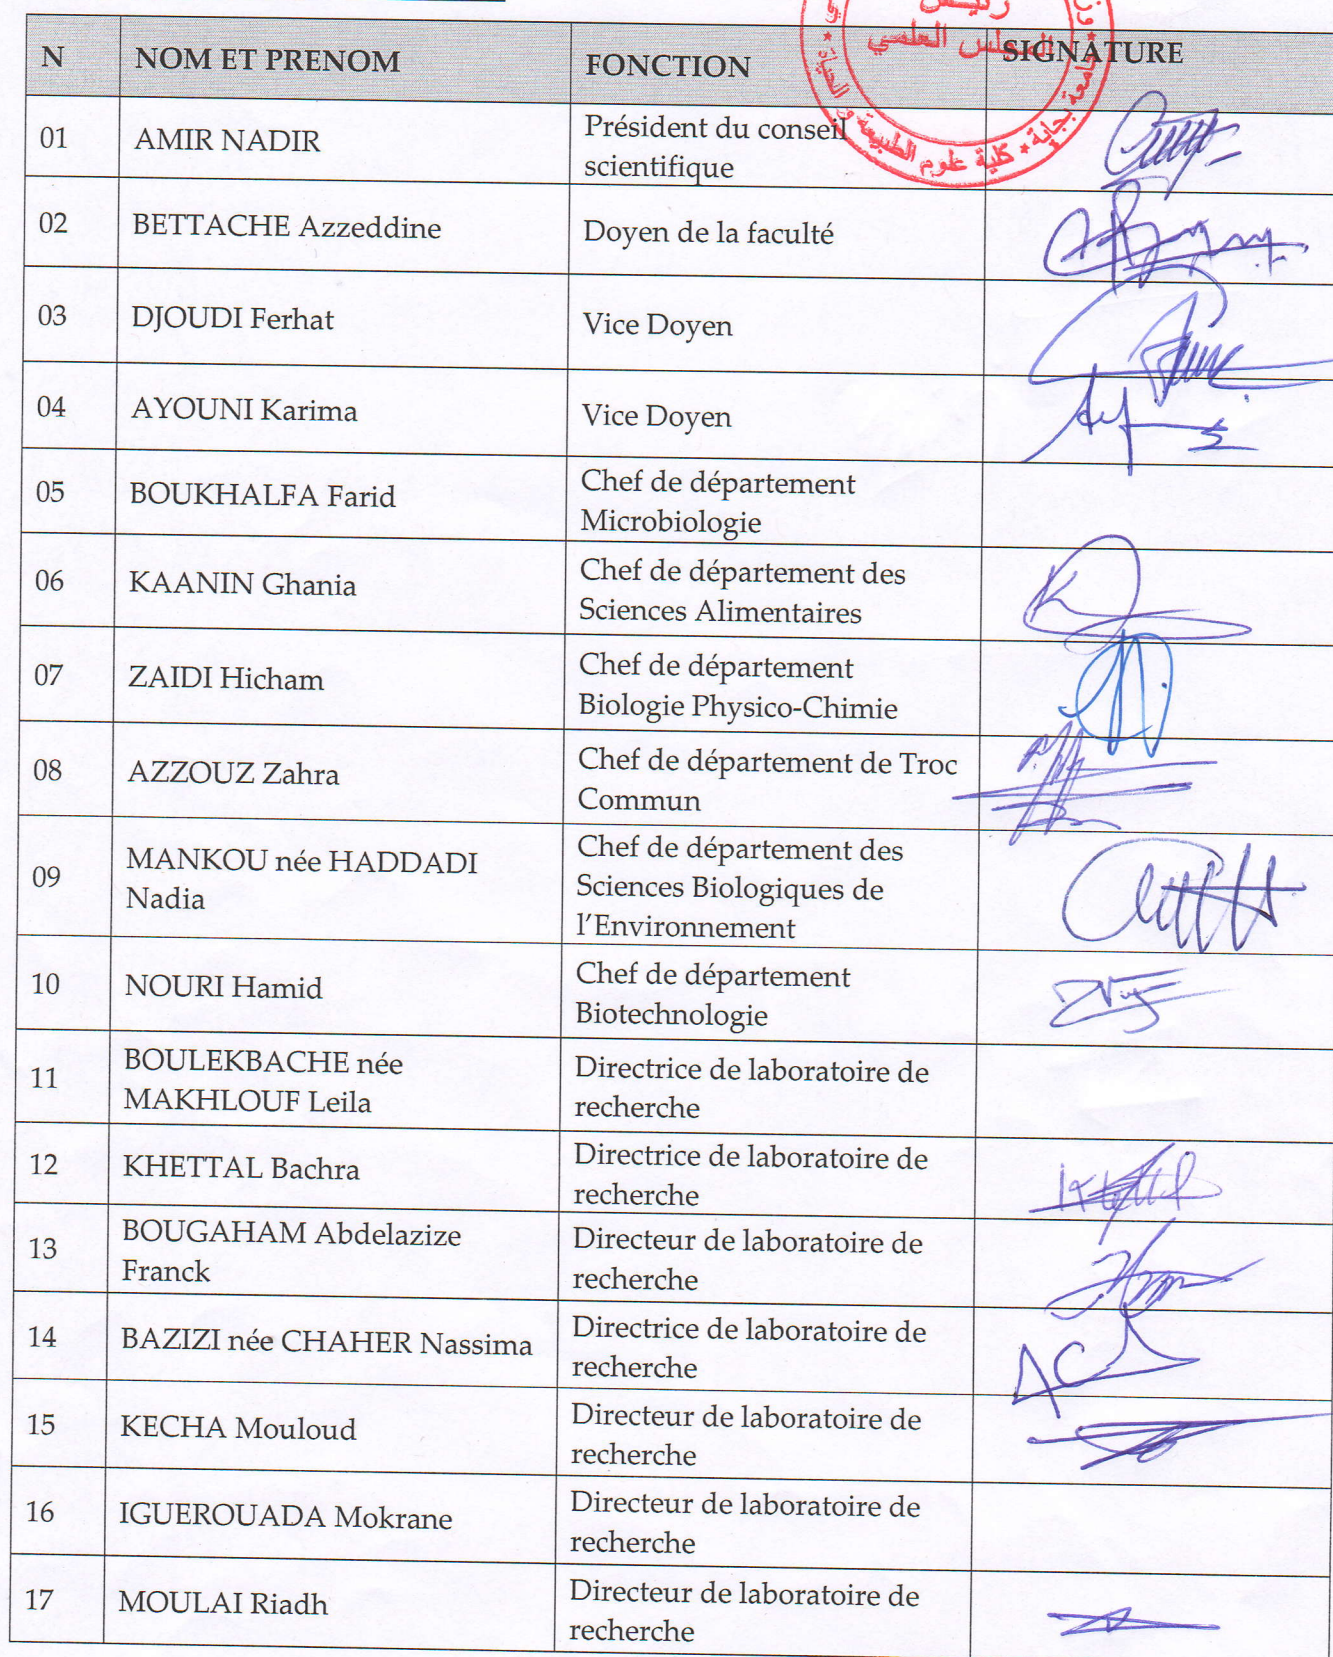 رئيس
المجلس العلمي
جامعة بجاية * كلية علوم الطبيعة و الحياة *
N NOM ET PRENOM FONCTION SIGNATURE
01 AMIR NADIR Président du conseil
scientifique
02 BETTACHE Azzeddine Doyen de la faculté
03 DJOUDI Ferhat Vice Doyen
04 AYOUNI Karima Vice Doyen
05 BOUKHALFA Farid Chef de département
Microbiologie
06 KAANIN Ghania Chef de département des
Sciences Alimentaires
07 ZAIDI Hicham Chef de département
Biologie Physico-Chimie
08 AZZOUZ Zahra Chef de département de Troc
Commun
09 MANKOU née HADDADI
Nadia Chef de département des
Sciences Biologiques de
l'Environnement
10 NOURI Hamid Chef de département
Biotechnologie
11 BOULEKBACHE née
MAKHLOUF Leila Directrice de laboratoire de
recherche
12 KHETTAL Bachra Directrice de laboratoire de
recherche
13 BOUGAHAM Abdelazize
Franck Directeur de laboratoire de
recherche
14 BAZIZI née CHAHER Nassima Directrice de laboratoire de
recherche
15 KECHA Mouloud Directeur de laboratoire de
recherche
16 IGUEROUADA Mokrane Directeur de laboratoire de
recherche
17 MOULAI Riadh Directeur de laboratoire de
recherche